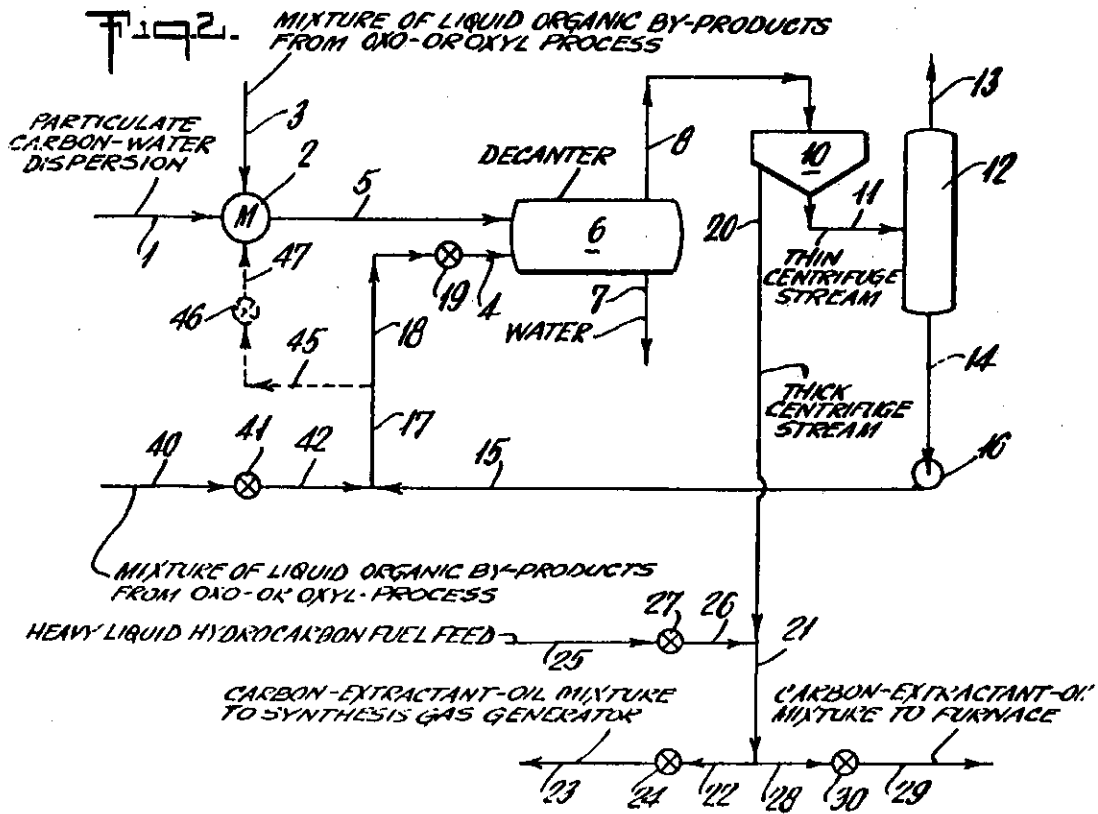 Fig. 2.
MIXTURE OF LIQUID ORGANIC BY-PRODUCTS
FROM OXO-OR OXYL PROCESS
PARTICULATE
CARBON-WATER
DISPERSION
3
2
M
1
5
47
46
45
DECANTER
6
8
19
4
7
WATER
18
17
10
11
20
THIN
CENTRIFUGE
STREAM
13
12
14
THICK
CENTRIFUGE
STREAM
16
15
40
41
42
MIXTURE OF LIQUID ORGANIC BY-PRODUCTS
FROM OXO-OR OXYL-PROCESS
HEAVY LIQUID HYDROCARBON FUEL FEED
25
27
26
21
CARBON-EXTRACTANT-OIL MIXTURE
TO SYNTHESIS GAS GENERATOR
CARBON-EXTRACTANT-OIL
MIXTURE TO FURNACE
23
24
22
28
30
29